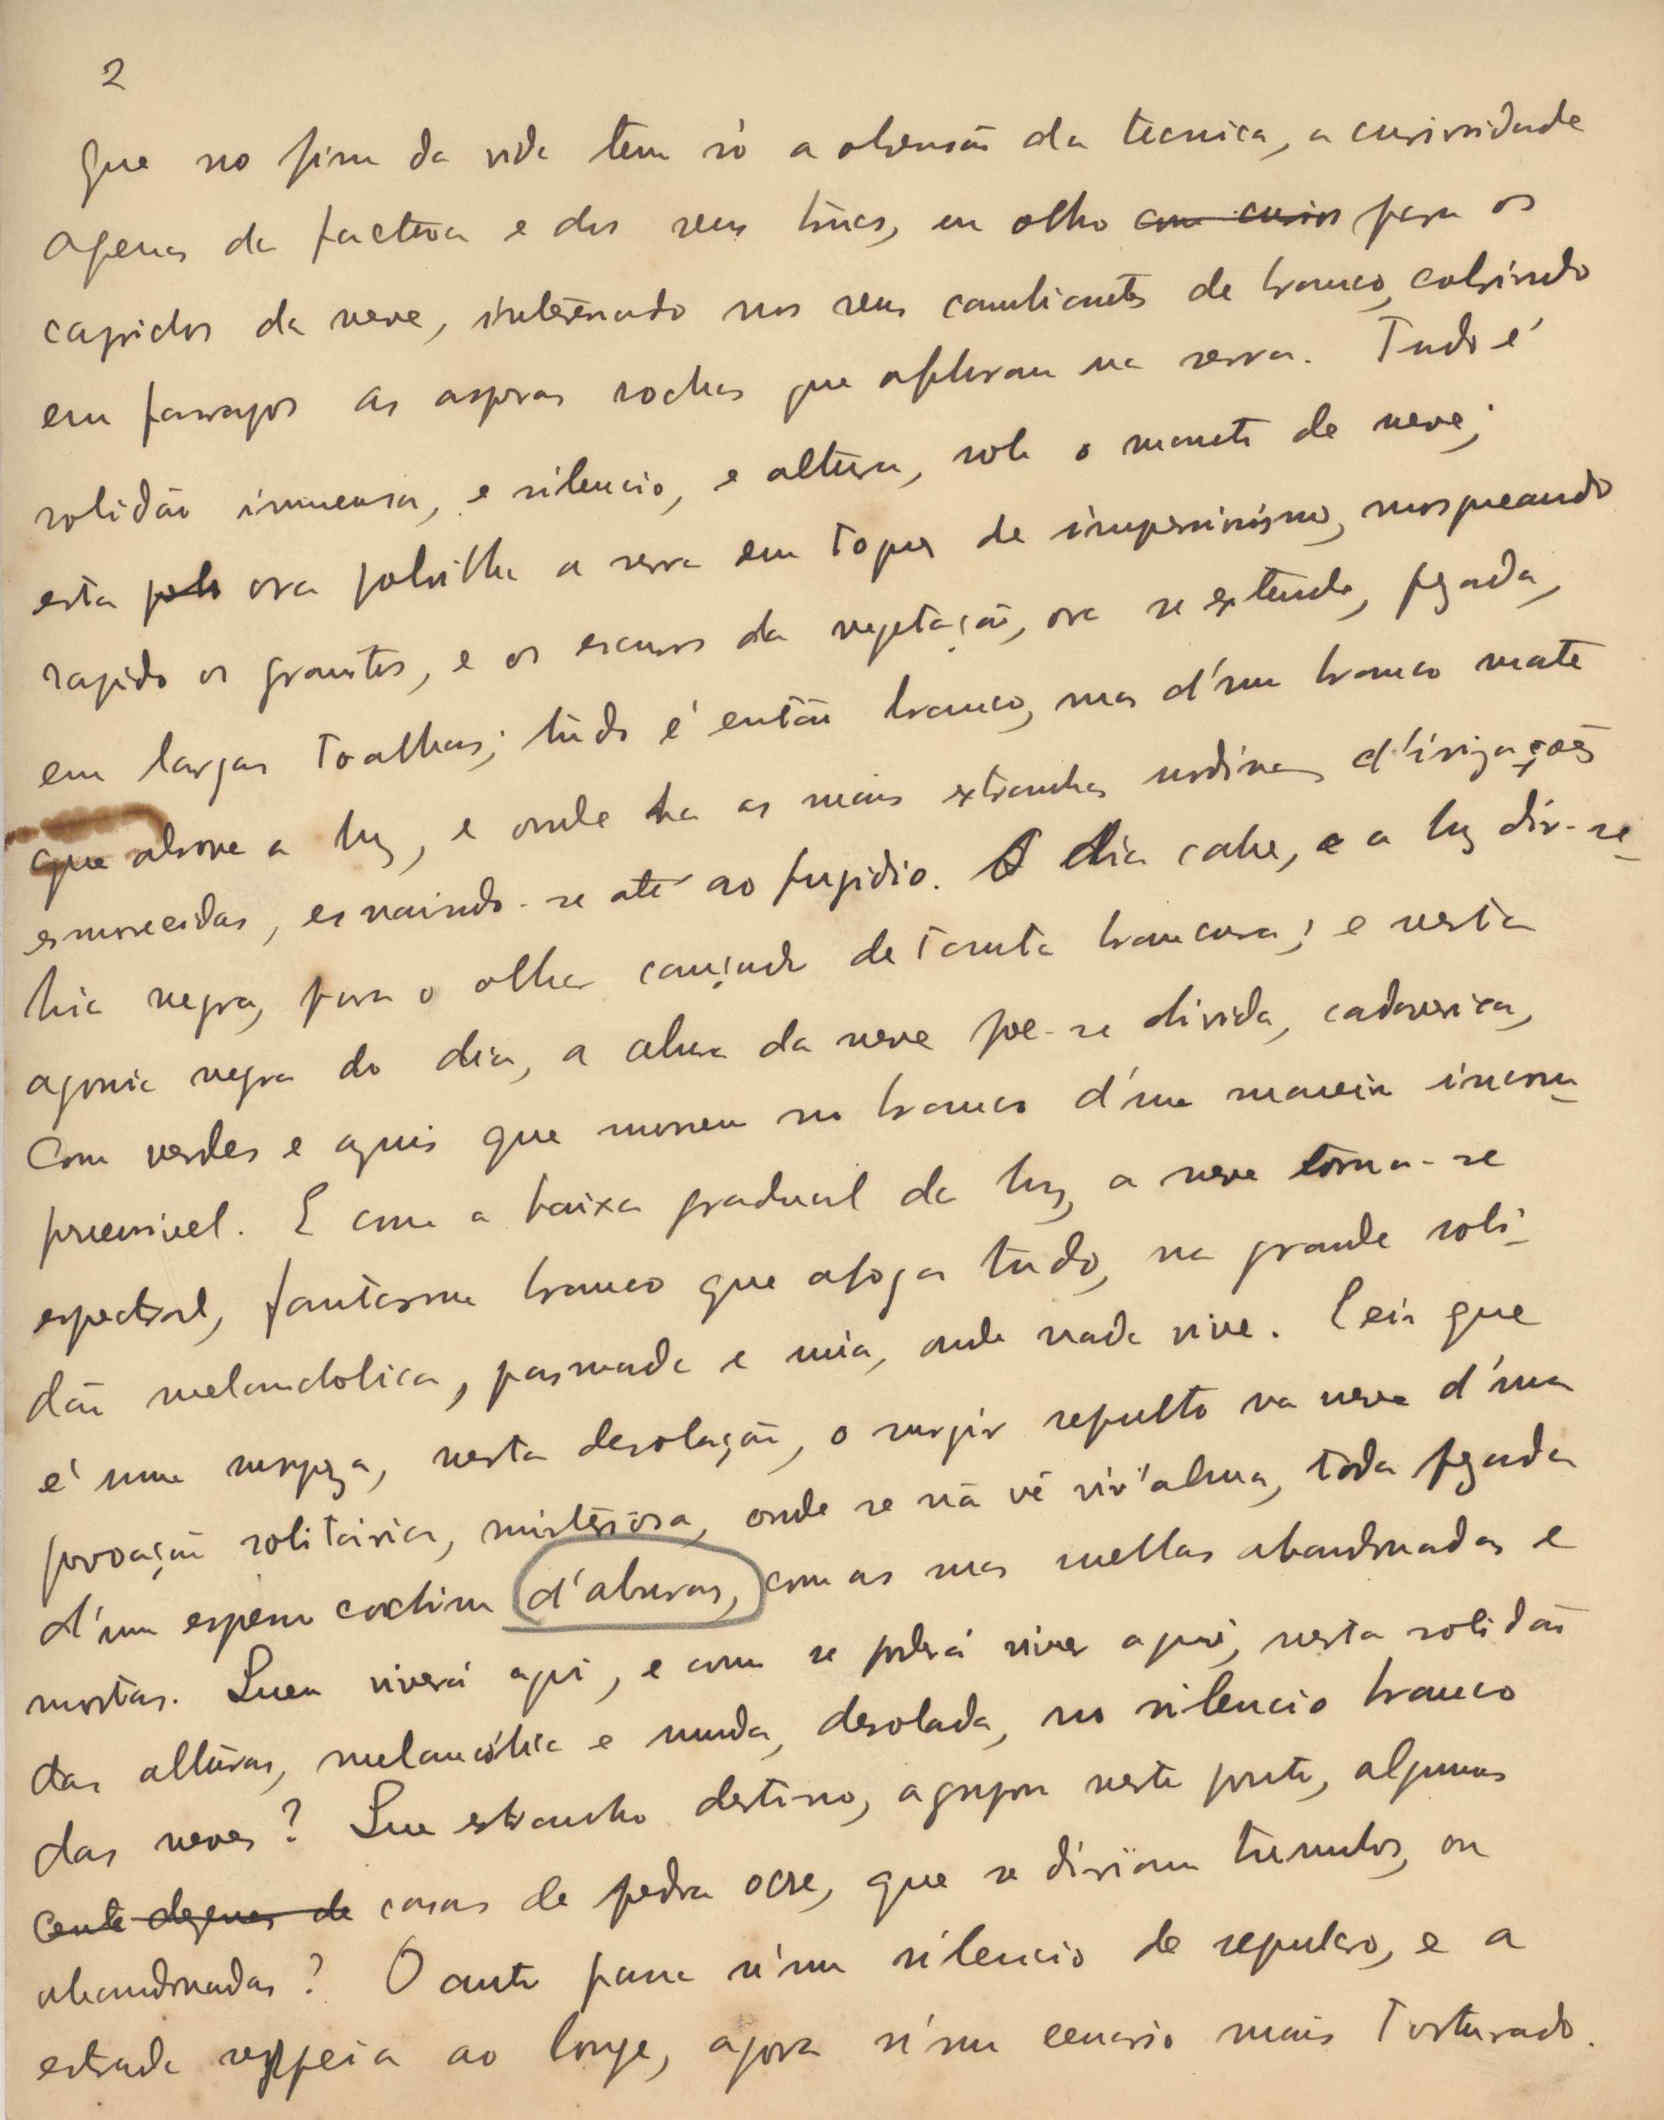 2
que no fim da vida tem só a obsensão da tecnica, a curiosidade
apenas da factura e dos seus trucs, eu olho com curios para os
caprichos da neve, interessado nos seus cambiantes de branco, cobrindo
em farrapos as asperas rochas que afloram na serra. Tudo é
solidão immensa, e silencio, e altura, sob o manto de neve;
esta polv ora polvilha a serra em toques de impressionismo, mosqueando
rapido os granitos, e os escuros da vegetação, ora se extende, pegada,
em largas toalhas; tudo é então branco, mas d'um branco mate
que absorve a luz, e onde ha as mais extranhas surdinas d'irizações
esmorecidas, esvaindo-se até ao fugidio. O dia cahe, e a luz dir-se-
hia negra, para o olhar cançado de tanta brancura; e nesta
agonia negra do dia, a alvura da neve põe-se livida, cadaverica,
com verdes e azuis que morrem no branco d'uma maneira incom-
preensivel. E com a baixa gradual da luz, a neve torna-se
espectral, fantasma branco que afoga tudo, na grande soli-
dão melancholica, pasmada e nua, onde nada vive. Eeis que
é uma surpreza, nesta desolação, o surgir sepulto na neve d'uma
povoação solitária, misteriosa, onde se não vê viv'alma, toda pegada
d'um espesso cochim d'alvuras, com as suas ruellas abandonadas e
mortas. Quem viverá aqui, e como se poderá viver aqui, nesta solidão
das alturas, melancólica e muda, desolada, no silencio branco
das neves? Que extranho destino, agrupou neste ponto, algumas
cento dezenas de casas de pedra ocre, que se diriam tumulos, ou
abandonadas? O auto passa n'um silencio de sepulcro, e a
estrada serpeia ao longe, agora n'um cenario mais torturado.